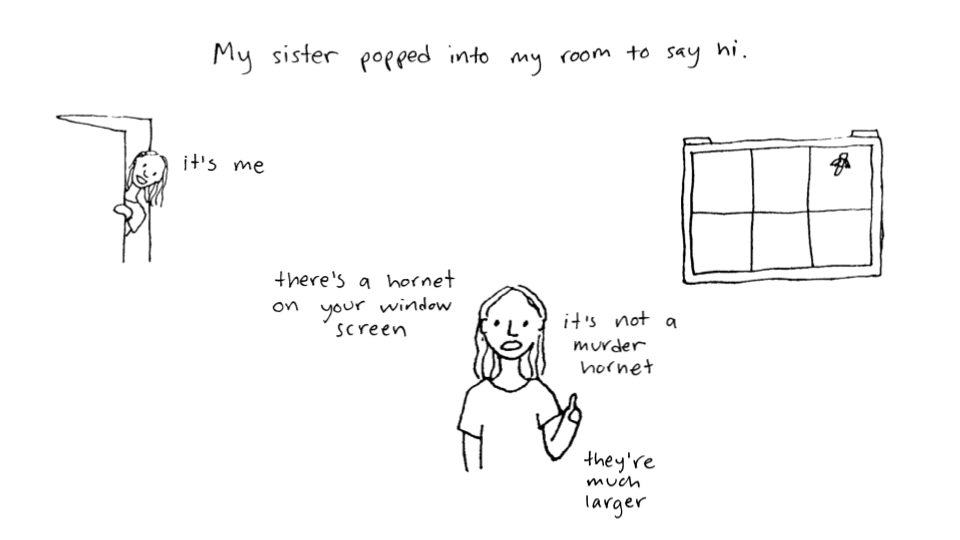 My sister popped into my room to say hi.
it's me
there's a hornet
on your window
screen
it's not a
murder
hornet
they're
much
larger